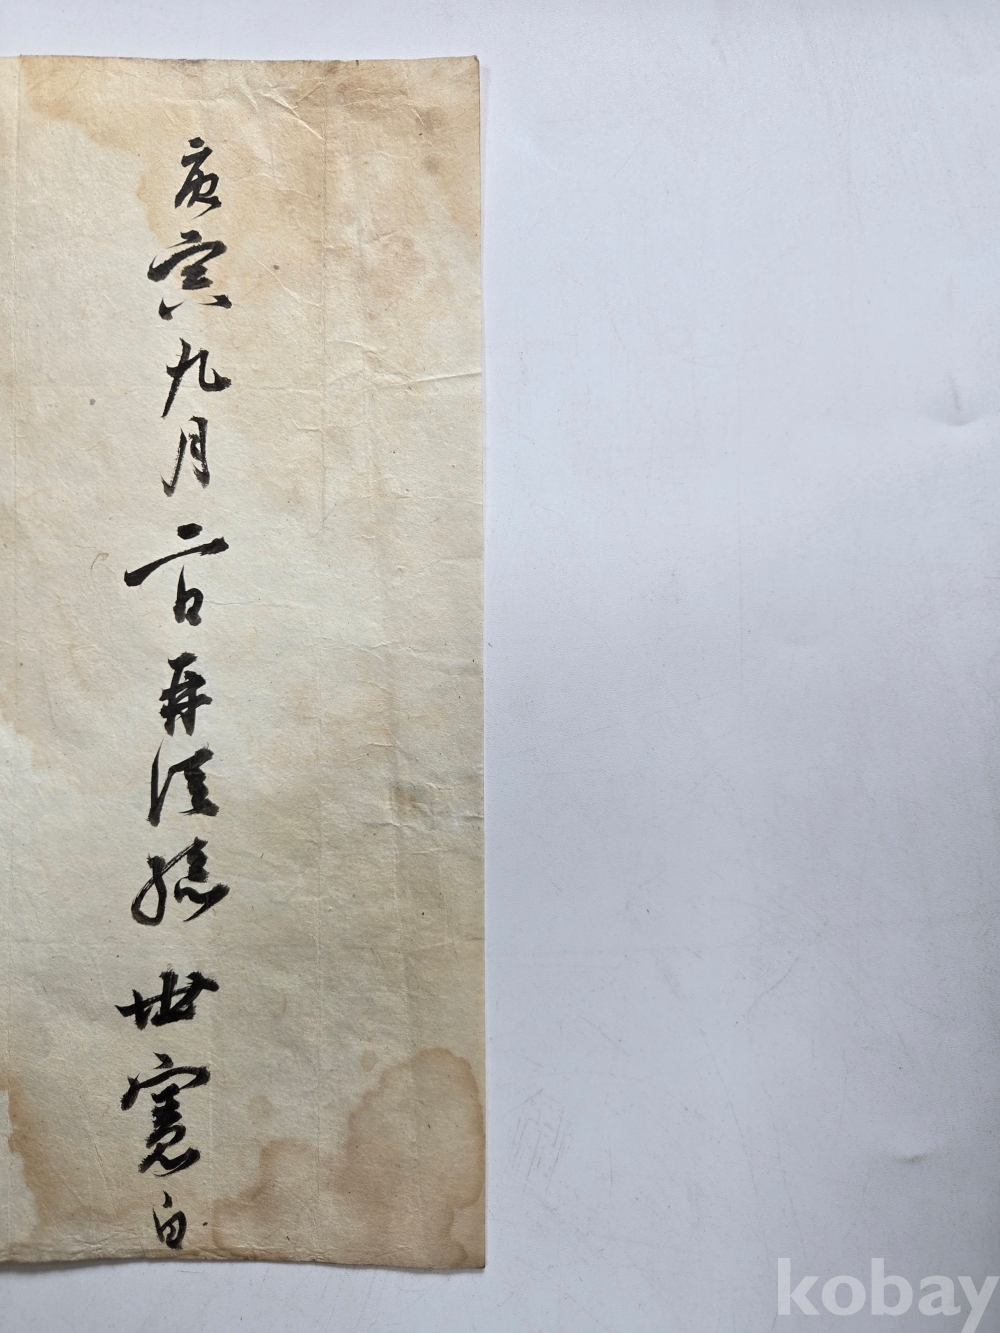 庚寅九月二日再從孫世寬白
kobay